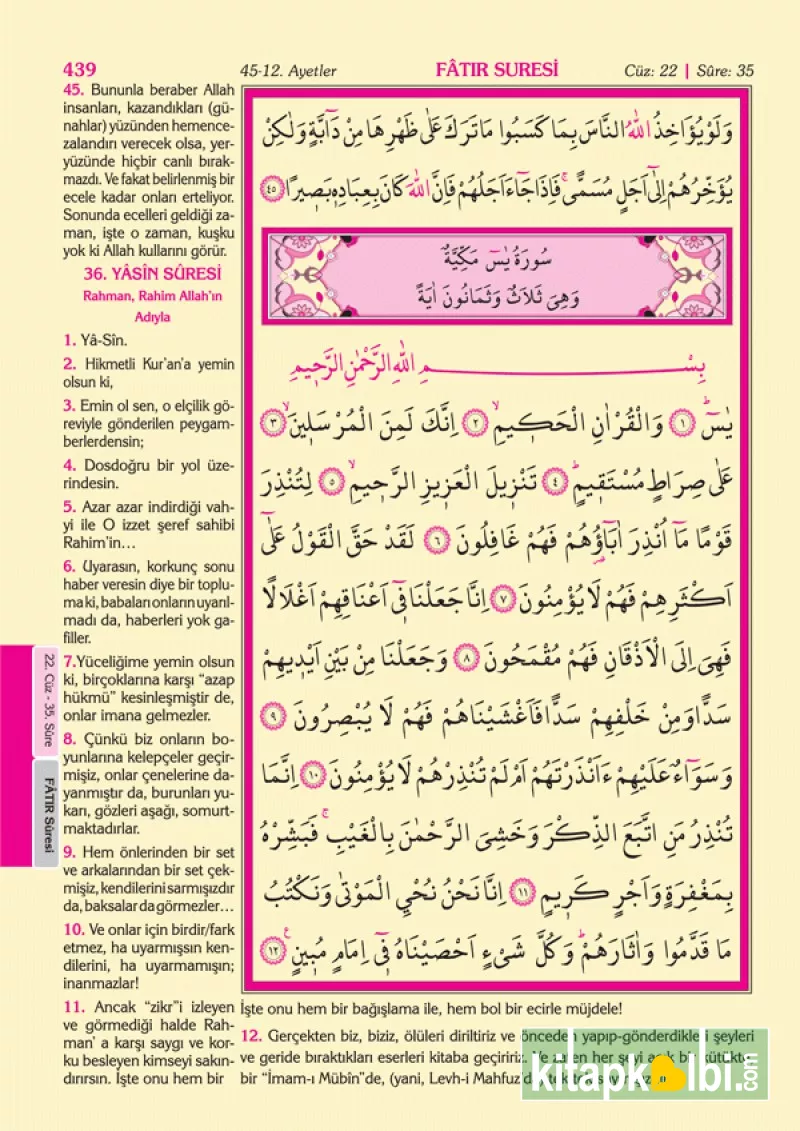 439
45-12. Ayetler
FÂTIR SURESİ
Cüz: 22 | Sûre: 35
45. Bununla beraber Allah
insanları, kazandıkları (gü-
nahlar) yüzünden hemence-
zalandırı verecek olsa, yer-
yüzünde hiçbir canlı bırak-
mazdı. Ve fakat belirlenmiş bir
ecele kadar onları erteliyor.
Sonunda ecelleri geldiği za-
man, işte o zaman, kuşku
yok ki Allah kullarını görür.
36. YÂSİN SÛRESİ
Rahman, Rahim Allah'ın
Adıyla
1. Yâ-Sîn.
2. Hikmetli Kur'an'a yemin
olsun ki,
3. Emin ol sen, o elçilik gö-
reviyle gönderilen peygam-
berlerdensin;
4. Dosdoğru bir yol üze-
rindesin.
5. Azar azar indirdiği vah-
yi ile O izzet şeref sahibi
Rahim'in...
6. Uyarasın, korkunç sonu
haber veresin diye bir toplu-
ma ki, babaları onların uyarıl-
madı da, haberleri yok ga-
filler.
7.Yüceliğime yemin olsun
ki, birçoklarına karşı “azap
hükmü” kesinleşmiştir de,
onlar imana gelmezler.
8. Çünkü biz onların bo-
yunlarına kelepçeler geçir-
mişiz, onlar çenelerine da-
yanmıştır da, burunları yu-
karı, gözleri aşağı, somurt-
maktadırlar.
9. Hem önlerinden bir set
ve arkalarından bir set çek-
mişiz, kendilerini sarmışızdır
da, baksalar da görmezler...
10. Ve onlar için birdir/fark
etmez, ha uyarmışsın ken-
dilerini, ha uyarmamışın;
inanmazlar!
11. Ancak “zikr”i izleyen
ve görmediği halde Rah-
man' a karşı saygı ve kor-
ku besleyen kimseyi sakın-
dırırsın. İşte onu hem bir
وَلَوْ يُؤَاخِذُ اللّٰهُ النَّاسَ بِمَا كَسَبُوا مَا تَرَكَ عَلٰى ظَهْرِهَا مِنْ دَٓابَّةٍ وَلٰكِنْ
يُؤَخِّرُهُمْ اِلٰٓى اَجَلٍ مُسَمًّىۚ فَاِذَا جَٓاءَ اَجَلُهُمْ فَاِنَّ اللّٰهَ كَانَ بِعِبَادِه۪ بَص۪يرًا ﴿٤٥﴾
سُورَةُ يٰسٓ مَكِّيَّةٌ
وَهِىَ ثَلَاثٌ وَثَمَانُونَ اٰيَةً
بِسْمِ اللّٰهِ الرَّحْمٰنِ الرَّح۪يمِ
يٰسٓۜ ﴿١﴾ وَالْقُرْاٰنِ الْحَك۪يمِۙ ﴿٢﴾ اِنَّكَ لَمِنَ الْمُرْسَل۪ينَۙ ﴿٣﴾
عَلٰى صِرَاطٍ مُسْتَق۪يمٍۜ ﴿٤﴾ تَنْز۪يلَ الْعَز۪يزِ الرَّح۪يمِۙ ﴿٥﴾ لِتُنْذِرَ
قَوْمًا مَٓا اُنْذِرَ اٰبَٓاؤُ۬هُمْ فَهُمْ غَافِلُونَ ﴿٦﴾ لَقَدْ حَقَّ الْقَوْلُ عَلٰٓى
اَكْثَرِهِمْ فَهُمْ لَا يُؤْمِنُونَ ﴿٧﴾ اِنَّا جَعَلْنَا ف۪ٓى اَعْنَاقِهِمْ اَغْلَالًا
فَهِىَ اِلَى الْاَذْقَانِ فَهُمْ مُقْمَحُونَ ﴿٨﴾ وَجَعَلْنَا مِنْ بَيْنِ اَيْد۪يهِمْ
سَدًّا وَمِنْ خَلْفِهِمْ سَدًّا فَاَغْشَيْنَاهُمْ فَهُمْ لَا يُبْصِرُونَ ﴿٩﴾
وَسَوَٓاءٌ عَلَيْهِمْ ءَاَنْذَرْتَهُمْ اَمْ لَمْ تُنْذِرْهُمْ لَا يُؤْمِنُونَ ﴿١٠﴾ اِنَّمَا
تُنْذِرُ مَنِ اتَّبَعَ الذِّكْرَ وَخَشِىَ الرَّحْمٰنَ بِالْغَيْبِۚ فَبَشِّرْهُ
بِمَغْفِرَةٍ وَاَجْرٍ كَر۪يمٍ ﴿١١﴾ اِنَّا نَحْنُ نُحْيِ الْمَوْتٰى وَنَكْتُبُ
مَا قَدَّمُوا وَاٰثَارَهُمْۜ وَكُلَّ شَىْءٍ اَحْصَيْنَاهُ ف۪ٓى اِمَامٍ مُب۪ينٍ ﴿١٢﴾
İşte onu hem bir bağışlama ile, hem bol bir ecirle müjdele!
12. Gerçekten biz, biziz, ölüleri diriltiriz ve önceden yapıp-gönderdikleri şeyleri
ve geride bıraktıkları eserleri kitaba geçiririz. Ve zaten her şeyi açık bir kütükte,
bir “İmam-ı Mübîn”de, (yani, Levh-i Mahfuz'da)
22. Cüz - 35. Sûre
FÂTIR Sûresi
kitapkalbi.com